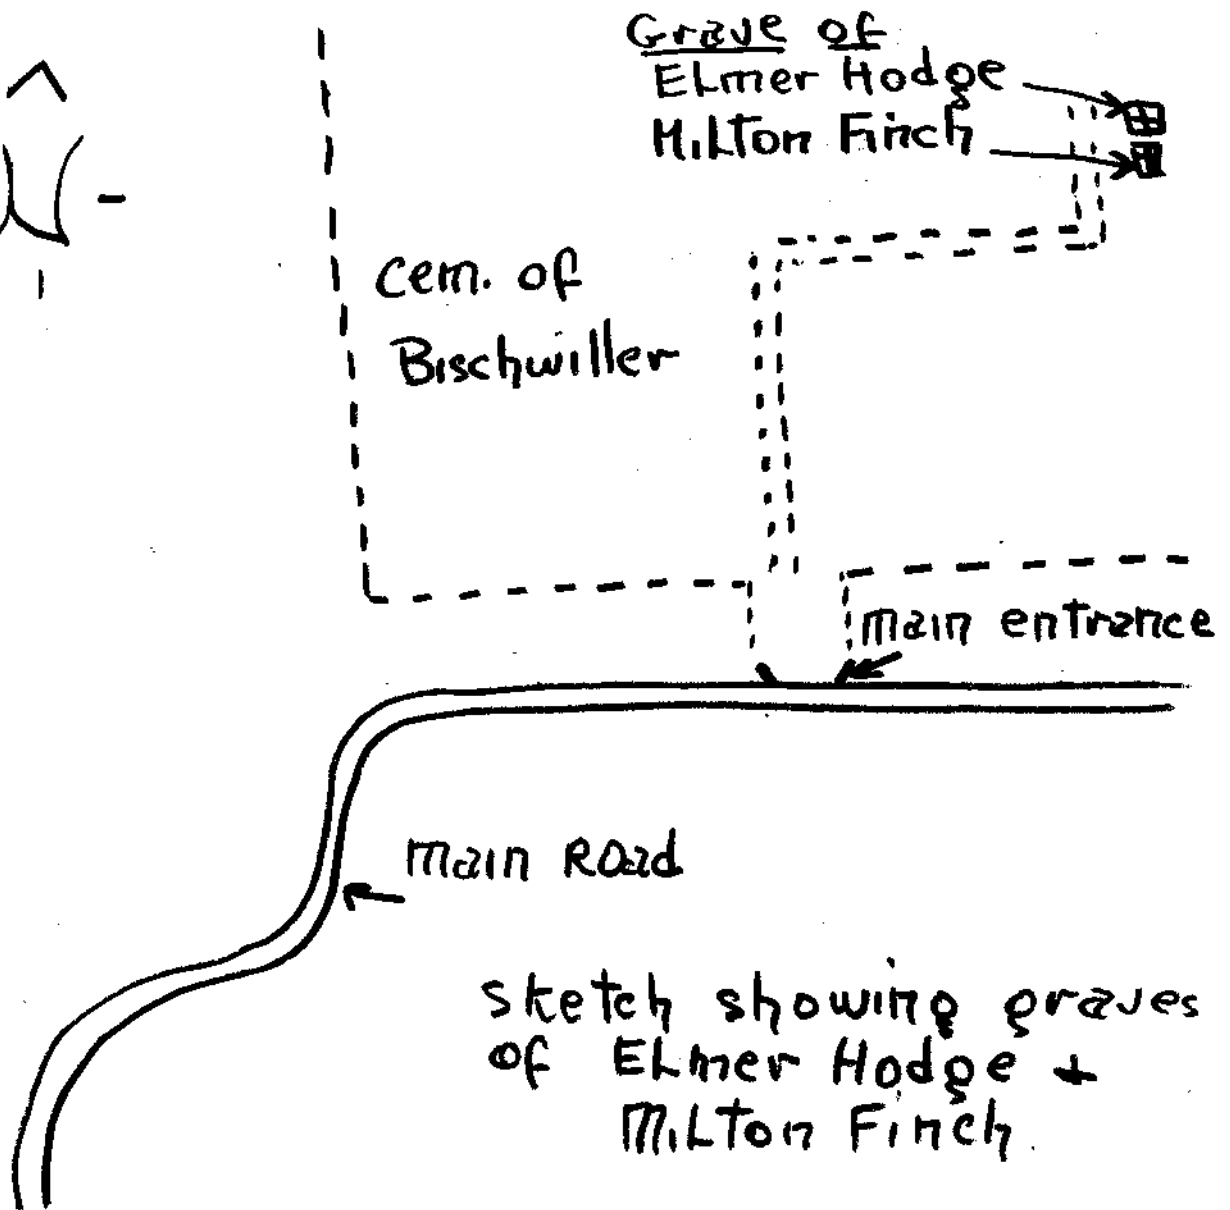 Grave of
Elmer Hodge
Milton Finch
Cem. of
Bischwiller
main entrance
main Road
sketch showing graves
of Elmer Hodge +
Milton Finch